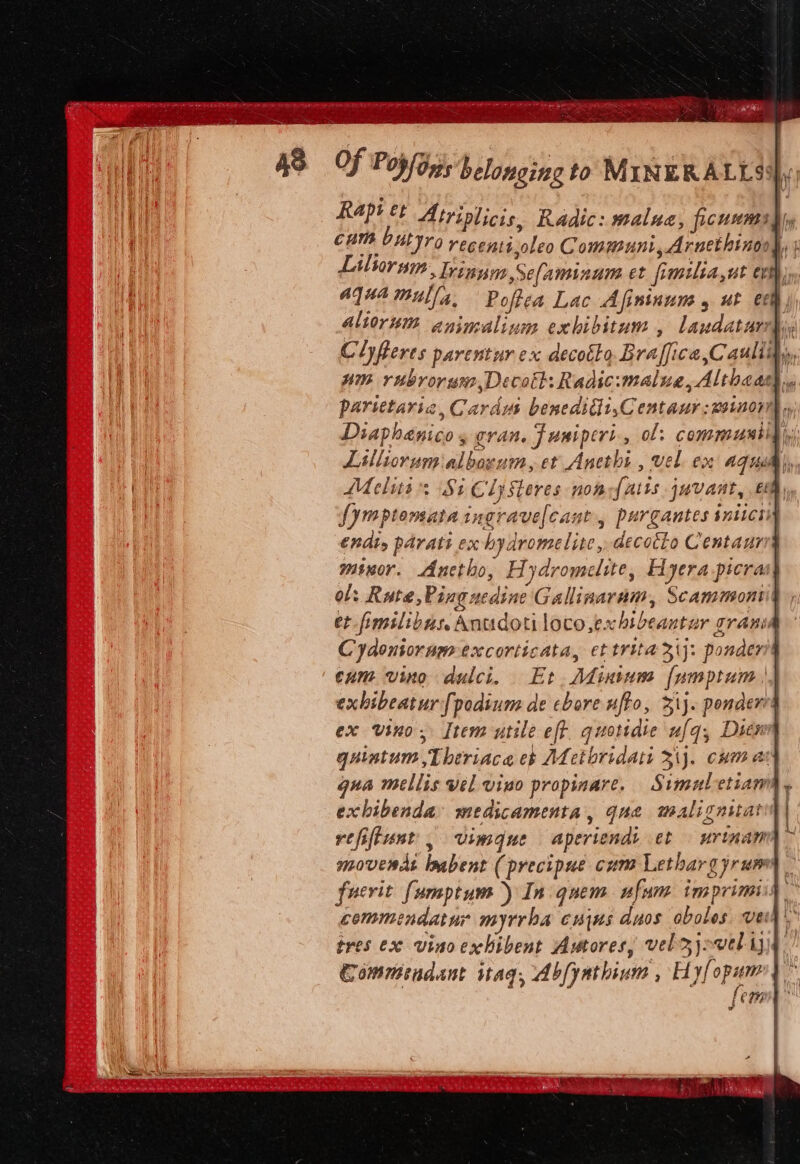 48 Of Poysons belonging to MINERALLS
Rapi et Atriplicis, Radic: malue, ficuum
cum butyro recenti,oleo Communi, Arnethino
Liliorum, Irinum,Sesaminum et similia,ut
aqua mulsa, Postea Lac Asininum, ut et
aliorum animalium exhibitum, laudatur
Clysteres parentur ex decocto Brassica,Cauli
um rubrorum,Decoct: Radic:malue, Althaa
parietaria, Cardui benedicti,Centaur:minor
Diaphænico, gran. Juniperi, ol: communi
Lilliorum alborum, et Anethi, vel ex aqua
Melitis Si Clysteres non-satis juvant, et
symptomata ingravescant, purgantes iniici
endi, parati ex hydromelite, decocto Centaur
minor. Anetho, Hydromelite, Hyera picra
ol: Rute,Pinguedine Gallinarum, Scammoni
et similibus. Antidoti loco,exhibeantur grana
Cydoniorum excorticata, et trita ʒij: ponder
cum vino dulci. Et Minium sumptum
exhibeatur spodium de ebore usto, ʒij. ponder
ex vino, Item utile est quotidie usq; Diem
quintum,Theriaca et Methridati ʒij. cum a
qua mellis vel vino propinare. Simul etiam
exhibenda medicamenta, que malignitat
resistunt, vimque aperiendi et urinam
movendi habent (precipue cum Lethargyrum
fuerit sumptum) In quem usum imprimi
commendatur myrrha cujus duos oboles ve
tres ex vino exhibent Autores, vel ʒj. vel ij
Commendant itaq; Absynthium, Hysopum
sem